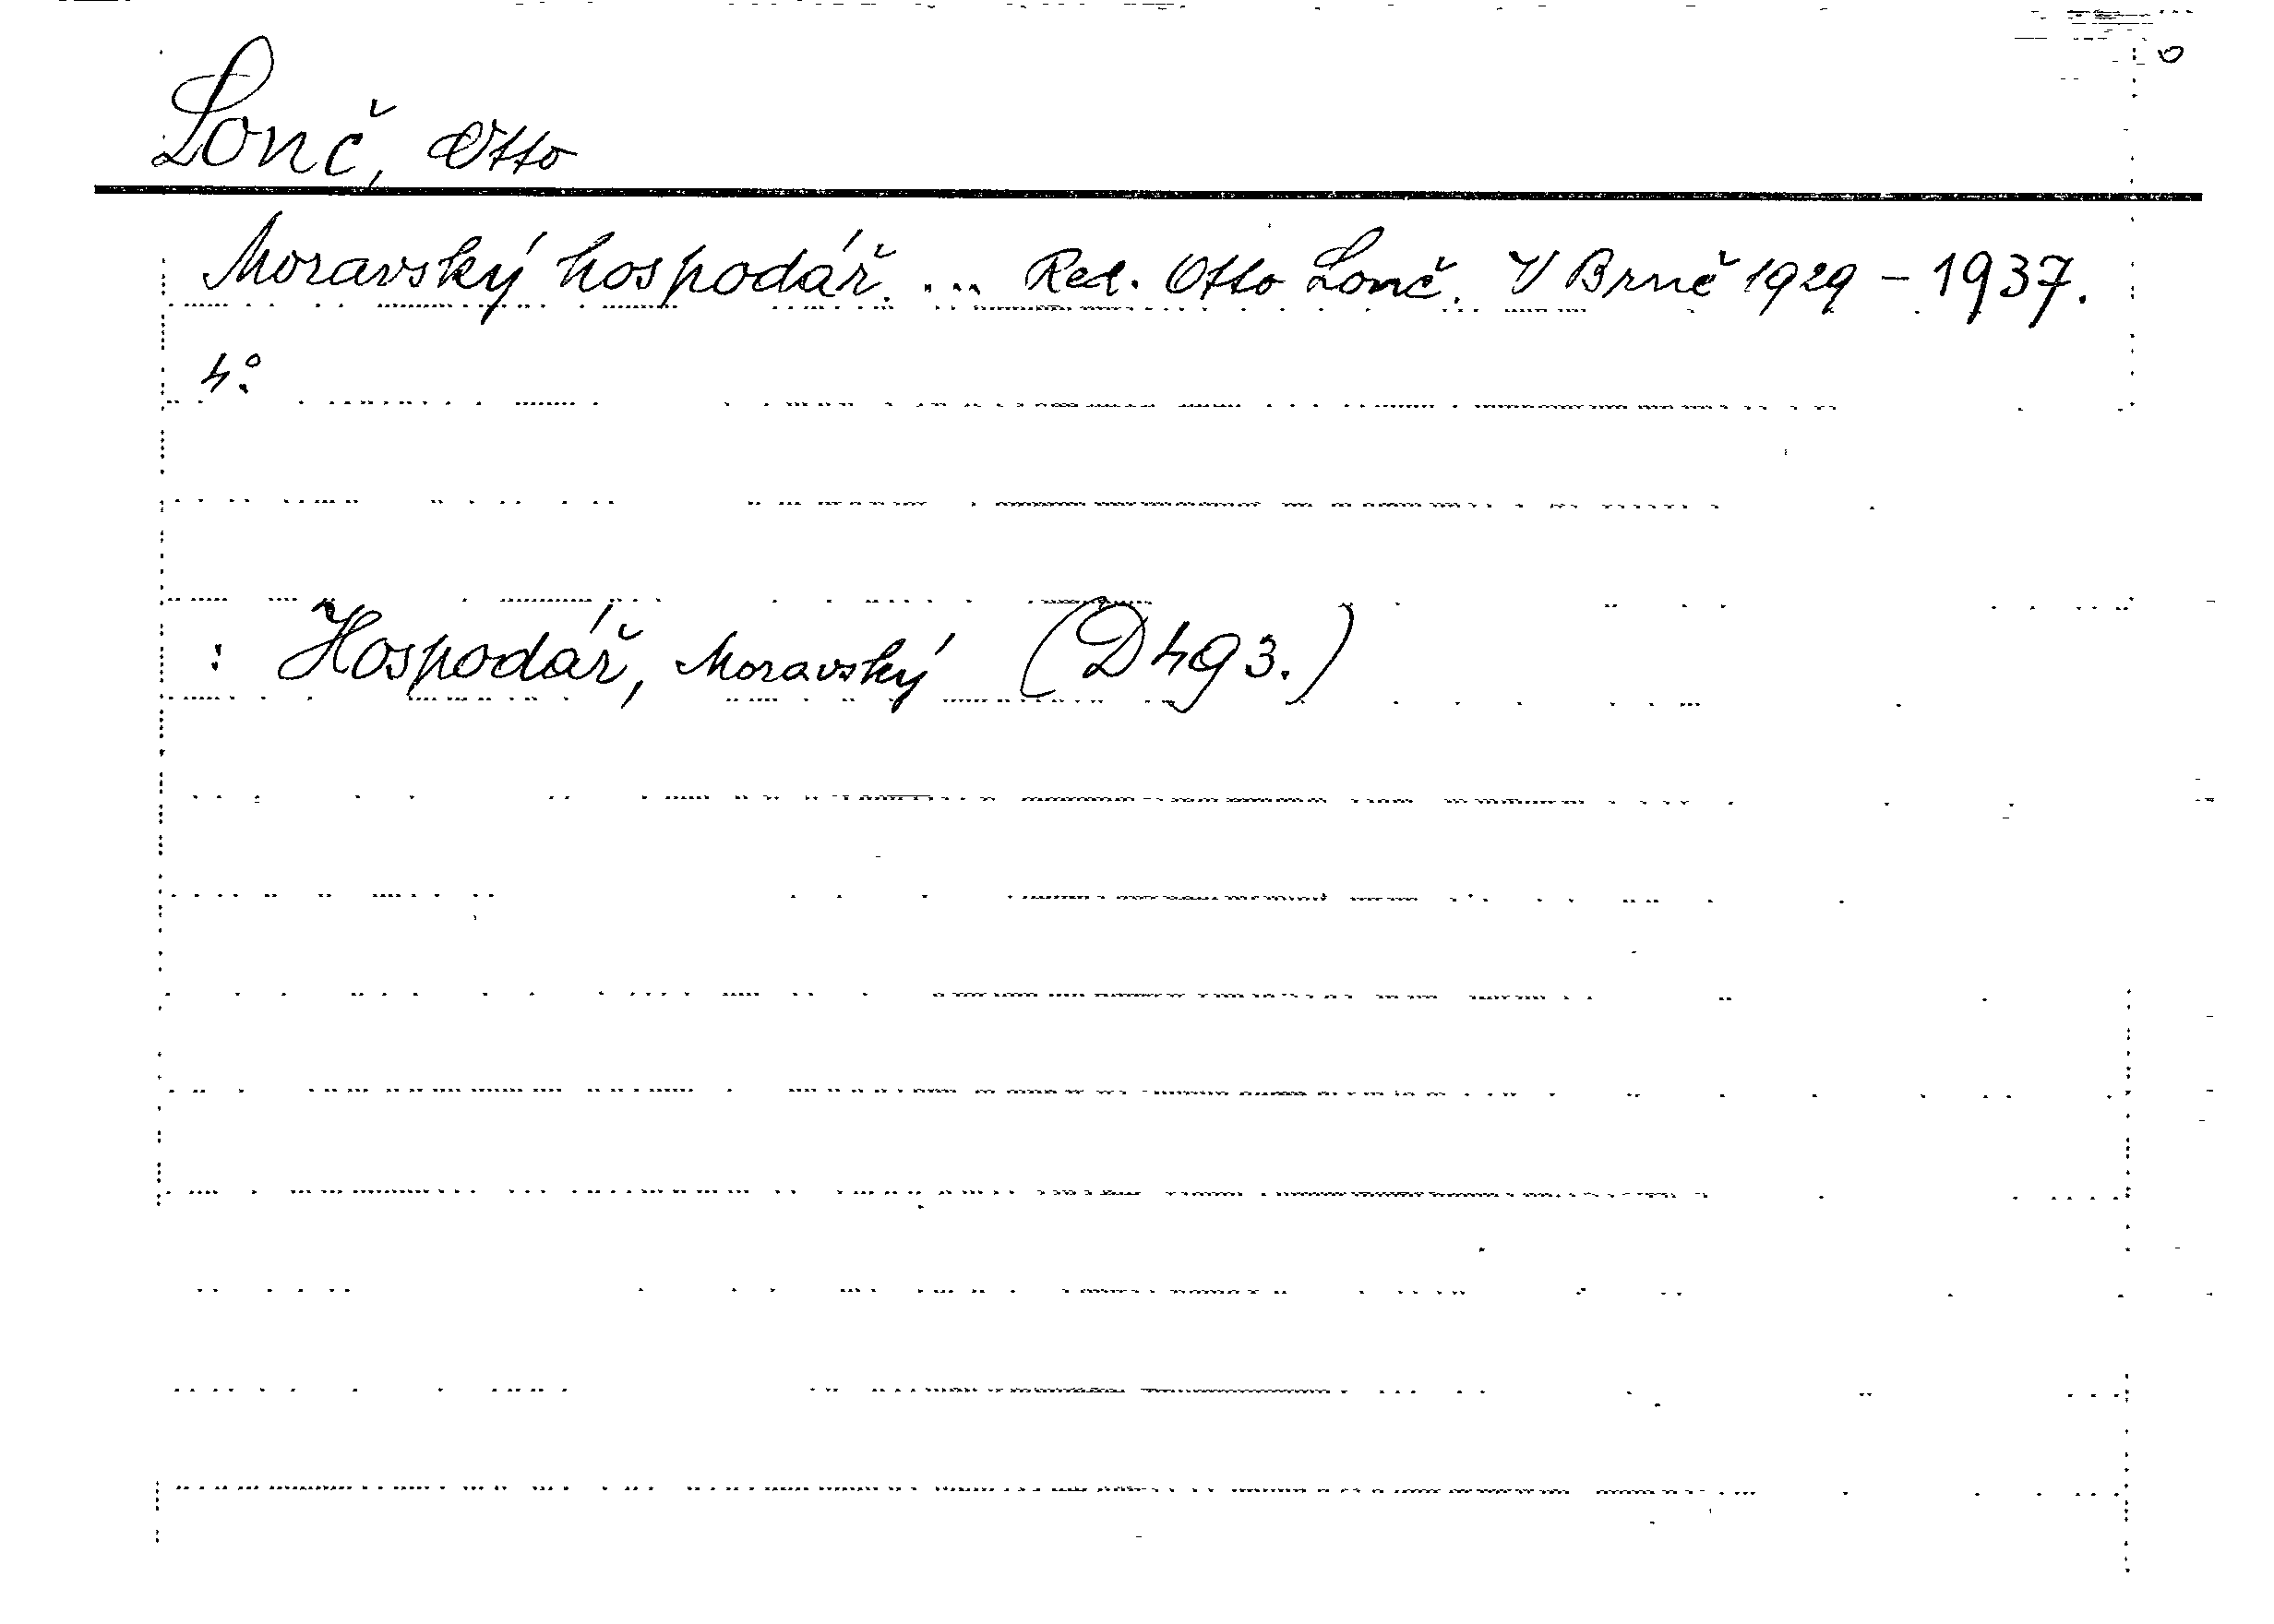 Lonč, Otto
Moravský hospodář. ... Red. Otto Lonč. V Brně 1929 - 1937.
4°.
: Hospodář, Moravský (D 493.)